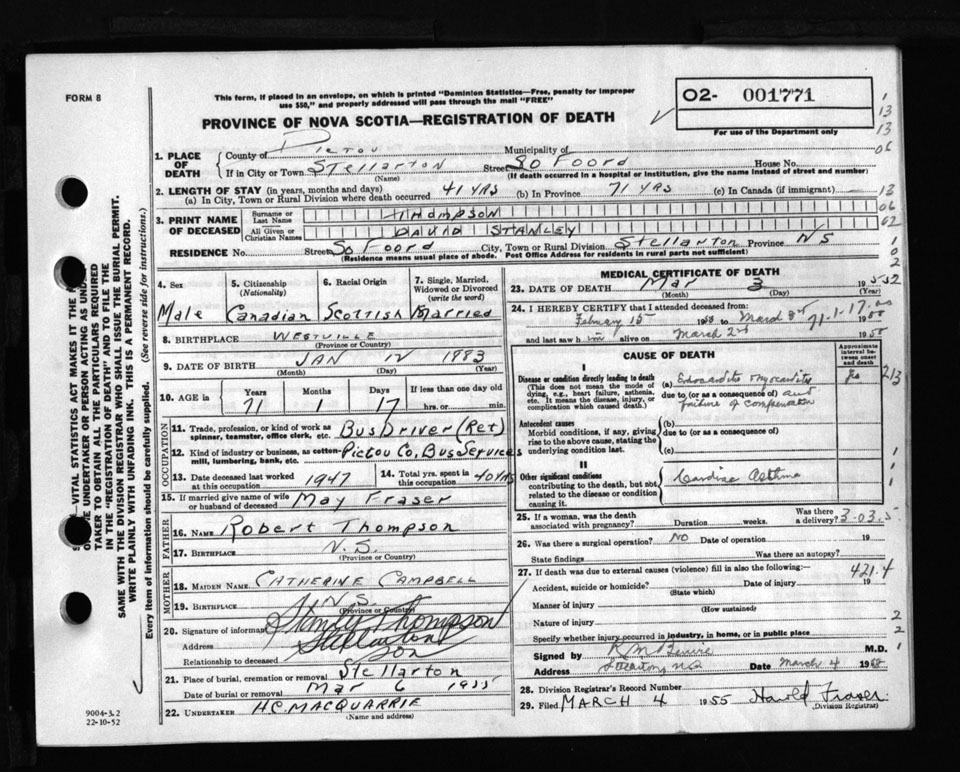 FORM 8
This form, if placed in an envelope, on which is printed "Dominion Statistics—Free, penalty for improper
use $50," and properly addressed will pass through the mail "FREE"
PROVINCE OF NOVA SCOTIA—REGISTRATION OF DEATH
O2- 001771
For use of the Department only
1
13
13
06
1. PLACE OF DEATH
County of Pictou Municipality of
If in City or Town Stellarton Street So Foord House No.
(Name) (If death occurred in a hospital or institution, give the name instead of street and number)
2. LENGTH OF STAY (in years, months and days)
(a) In City, Town or Rural Division where death occurred 41 yrs (b) In Province 71 yrs (c) In Canada (if immigrant) 13
3. PRINT NAME OF DECEASED
Surname or Last Name THOMPSON 06
All Given or Christian Names DAVID STANLEY 02
RESIDENCE No. Street So Foord City, Town or Rural Division Stellarton Province NS
(Residence means usual place of abode. Post Office Address for residents in rural parts not sufficient)
1
0
2
4. Sex
Male
5. Citizenship (Nationality)
Canadian
6. Racial Origin
Scottish
7. Single, Married, Widowed or Divorced (write the word)
Married
8. BIRTHPLACE WESTVILLE
(Province or Country)
9. DATE OF BIRTH JAN 12 1883
(Month) (Day) (Year)
10. AGE in Years Months Days If less than one day old
71 1 17 hrs. or min.
OCCUPATION
11. Trade, profession, or kind of work as spinner, teamster, office clerk, etc. Bus Driver (Ret)
12. Kind of industry or business, as cotton-mill, lumbering, bank, etc. Pictou Co, Bus Services
13. Date deceased last worked at this occupation 1947
14. Total years spent in this occupation 40 yrs
15. If married give name of wife or husband of deceased May Fraser
FATHER
16. Name Robert Thompson
17. Birthplace N.S.
(Province or Country)
MOTHER
18. Maiden Name CATHERINE CAMPBELL
19. Birthplace N S
(Province or Country)
20. Signature of informant Stanley Thompson
Address Stellarton
Relationship to deceased Son
21. Place of burial, cremation or removal Stellarton
Date of burial or removal Mar 6 1955
22. UNDERTAKER H.C. MACQUARRIE
(Name and address)
MEDICAL CERTIFICATE OF DEATH
23. DATE OF DEATH Mar 3 19
(Month) (Day) (Year)
24. I HEREBY CERTIFY that I attended deceased from
February 15 19 to March 3rd 19
71.1.17.00
and last saw him alive on March 2nd 19
CAUSE OF DEATH
Approximate interval between onset and death
I
Disease or condition directly leading to death
(This does not mean the mode of dying, e.g., heart failure, asthenia, etc. It means the disease, injury, or complication which caused death.)
(a) Endocarditis myocarditis
due to (or as a consequence of) and
failure of compensation
213
Antecedent causes
Morbid conditions, if any, giving rise to the above cause, stating the underlying condition last.
(b)
due to (or as a consequence of)
(c)
II
Other significant conditions
contributing to the death, but not related to the disease or condition causing it.
Cardiac Asthma
1
1
25. If a woman, was the death associated with pregnancy? Duration weeks. Was there a delivery?
3.03.5
26. Was there a surgical operation? No Date of operation 19
State findings Was there an autopsy?
27. If death was due to external causes (violence) fill in also the following:—
421.4
Accident, suicide or homicide? Date of injury 19
(State which)
Manner of injury
(How sustained)
Nature of injury
Specify whether injury occurred in industry, in home, or in public place
2
2
Signed by M.D.
1
Address Date March 4 19
28. Division Registrar's Record Number
29. Filed MARCH 4 1955 Harold Fraser
(Division Registrar)
9004-3.2
22-10-52
VITAL STATISTICS ACT MAKES IT THE
UNDERTAKER OR PERSON ACTING AS UNDER-
TAKER TO OBTAIN ALL THE PARTICULARS REQUIRED
IN THE "REGISTRATION OF DEATH" AND TO FILE THE
SAME WITH THE DIVISION REGISTRAR WHO SHALL ISSUE THE BURIAL PERMIT.
WRITE PLAINLY WITH UNFADING INK. THIS IS A PERMANENT RECORD.
Every item of information should be carefully supplied. (See reverse side for instructions.)